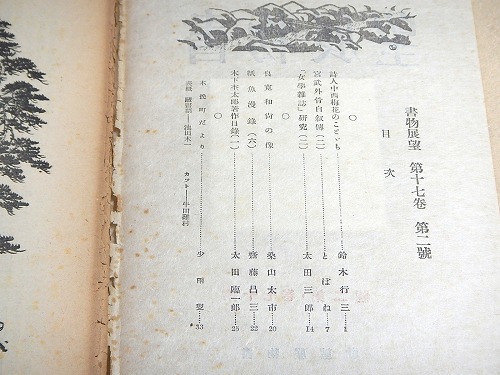 書物展望 第十七卷 第二號
目次
○
詩人中西梅花のことゞも……鈴木行三……1
宮武外骨自叙傳(二)……とぼね……7
「女學雜誌」研究(二)……太田三郎……14
○
良寛和尚の像……桑山太市……20
紙魚漫錄(六)……齋藤昌三……22
木下杢太郎著作目錄(一)……太田臨一郎……25
○
木挽町だより……少雨叟……33